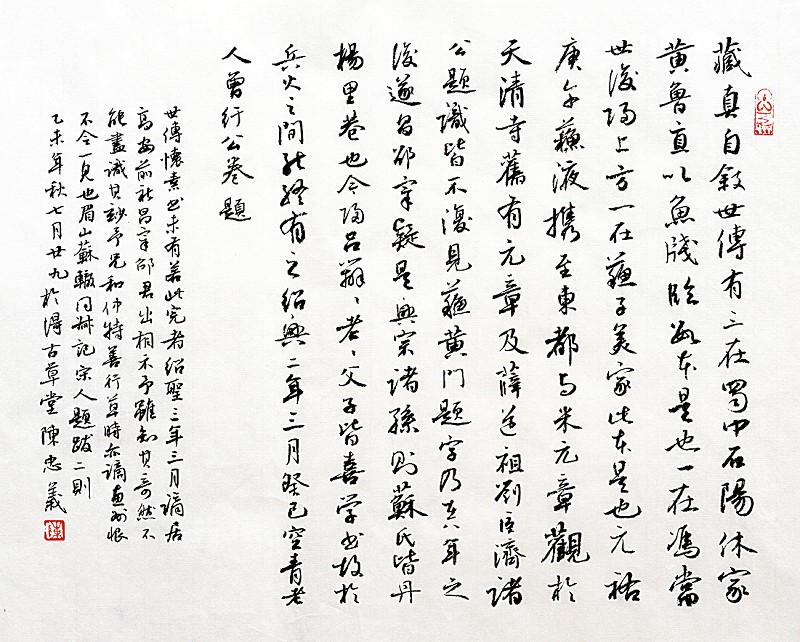 藏真自敘世傳有三在蜀中石陽休家
黃魯直以魚牋臨數本是也一在馮當
世後歸上方一在蘇子美家此本是也元祐
庚午蘇液攜至東都與米元章觀於
天清寺舊有元章及薛道祖劉巨濟諸
公題識皆不復見蘇黃門題字乃在八年之
後遂昌邵宰疑是興宗諸孫則蘇氏皆丹
楊里巷也今歸呂辯、老、父子皆喜學書故於
兵火之間能終有之紹興二年三月癸巳空青老
人曾紆公卷題
世傳懷素書未有若此完者紹聖三年三月謫居
高安前新昌宰邵君出相示予雖知其奇然不
能盡識其妙予兄和仲特善行草時亦謫惠州恨
不令一見也眉山蘇轍同叔記宋人題跋二則
乙未年秋七月廿九於得古草堂陳忠義